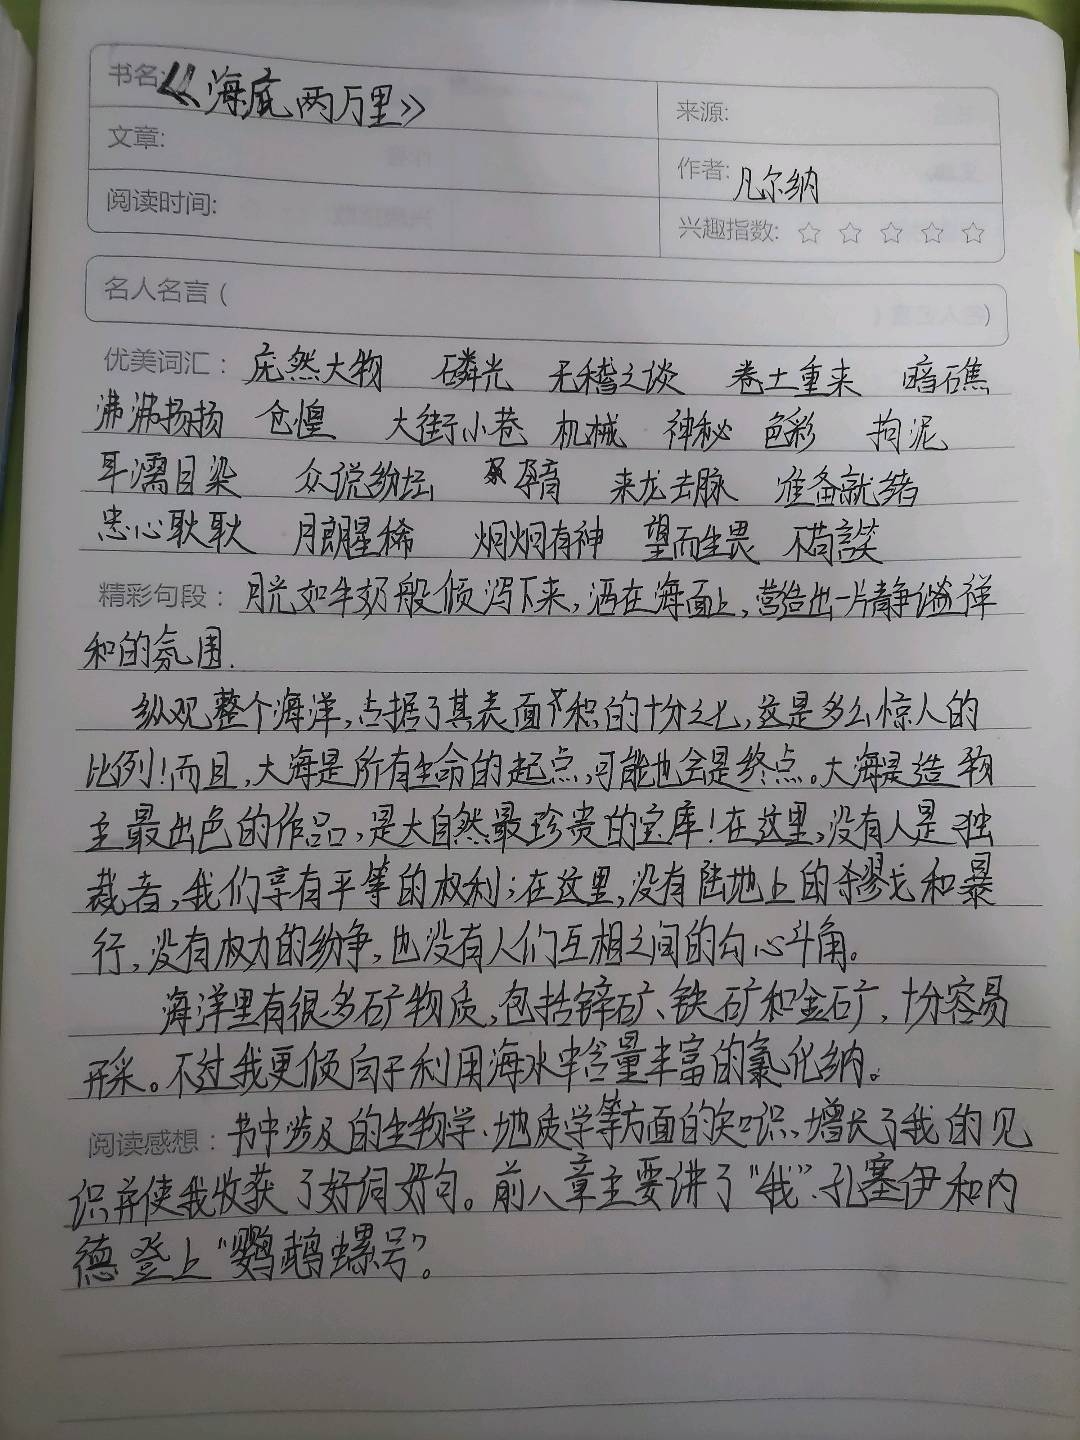 书名:《海底两万里》
来源:
文章:
作者:凡尔纳
阅读时间:
兴趣指数:☆☆☆☆☆
名人名言( )
优美词汇:庞然大物 磷光 无稽之谈 卷土重来 暗礁
沸沸扬扬 仓惶 大街小巷 机械 神秘 色彩 拘泥
耳濡目染 众说纷坛 孕育 来龙去脉 准备就绪
忠心耿耿 月朗星稀 炯炯有神 望而生畏 不苟言笑
精彩句段:月光如牛奶般倾泻下来,洒在海面上,营造出一片静谧祥
和的氛围.
纵观整个海洋,占据了其表面积的十分之七,这是多么惊人的
比例!而且,大海是所有生命的起点,可能也会是终点。大海是造物
主最出色的作品,是大自然最珍贵的宝库!在这里,没有人是独
裁者,我们享有平等的权利;在这里,没有陆地上的杀戮和暴
行,没有权力的纷争,也没有人们互相之间的勾心斗角。
海洋里有很多矿物质,包括锌矿、铁矿和金矿,十分容易
开采。不过我更倾向于利用海水中含量丰富的氯化纳。
阅读感想:书中涉及的生物学、地质学等方面的知识,增长了我的见
识并使我收获了好词好句。前八章主要讲了“我”、孔塞伊和内
德登上“鹦鹉螺号”。